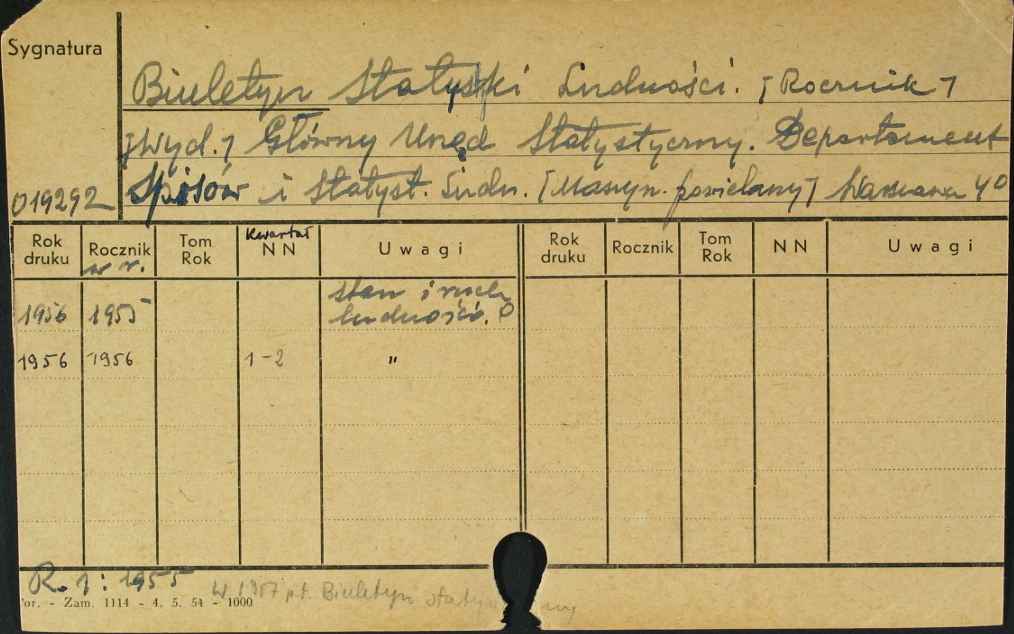 Sygnatura
Biuletyn Statystyki Ludności. [Rocznik]
[Wyd.] Główny Urząd Statystyczny. Departament
019292 Spisów i Statyst. Ludn. [Maszyn. powielany] Warszawa 40
Rok druku Rocznik w r. Tom Rok Kwartał NN Uwagi Rok druku Rocznik Tom Rok NN Uwagi
1956 1955 Stan i ruch
ludności.
1956 1956 1-2 "
R. 1: 1955
W 1957 p.t. Biuletyn statystyczny
or. - Zam. 1114 - 4. 5. 54 - 1000